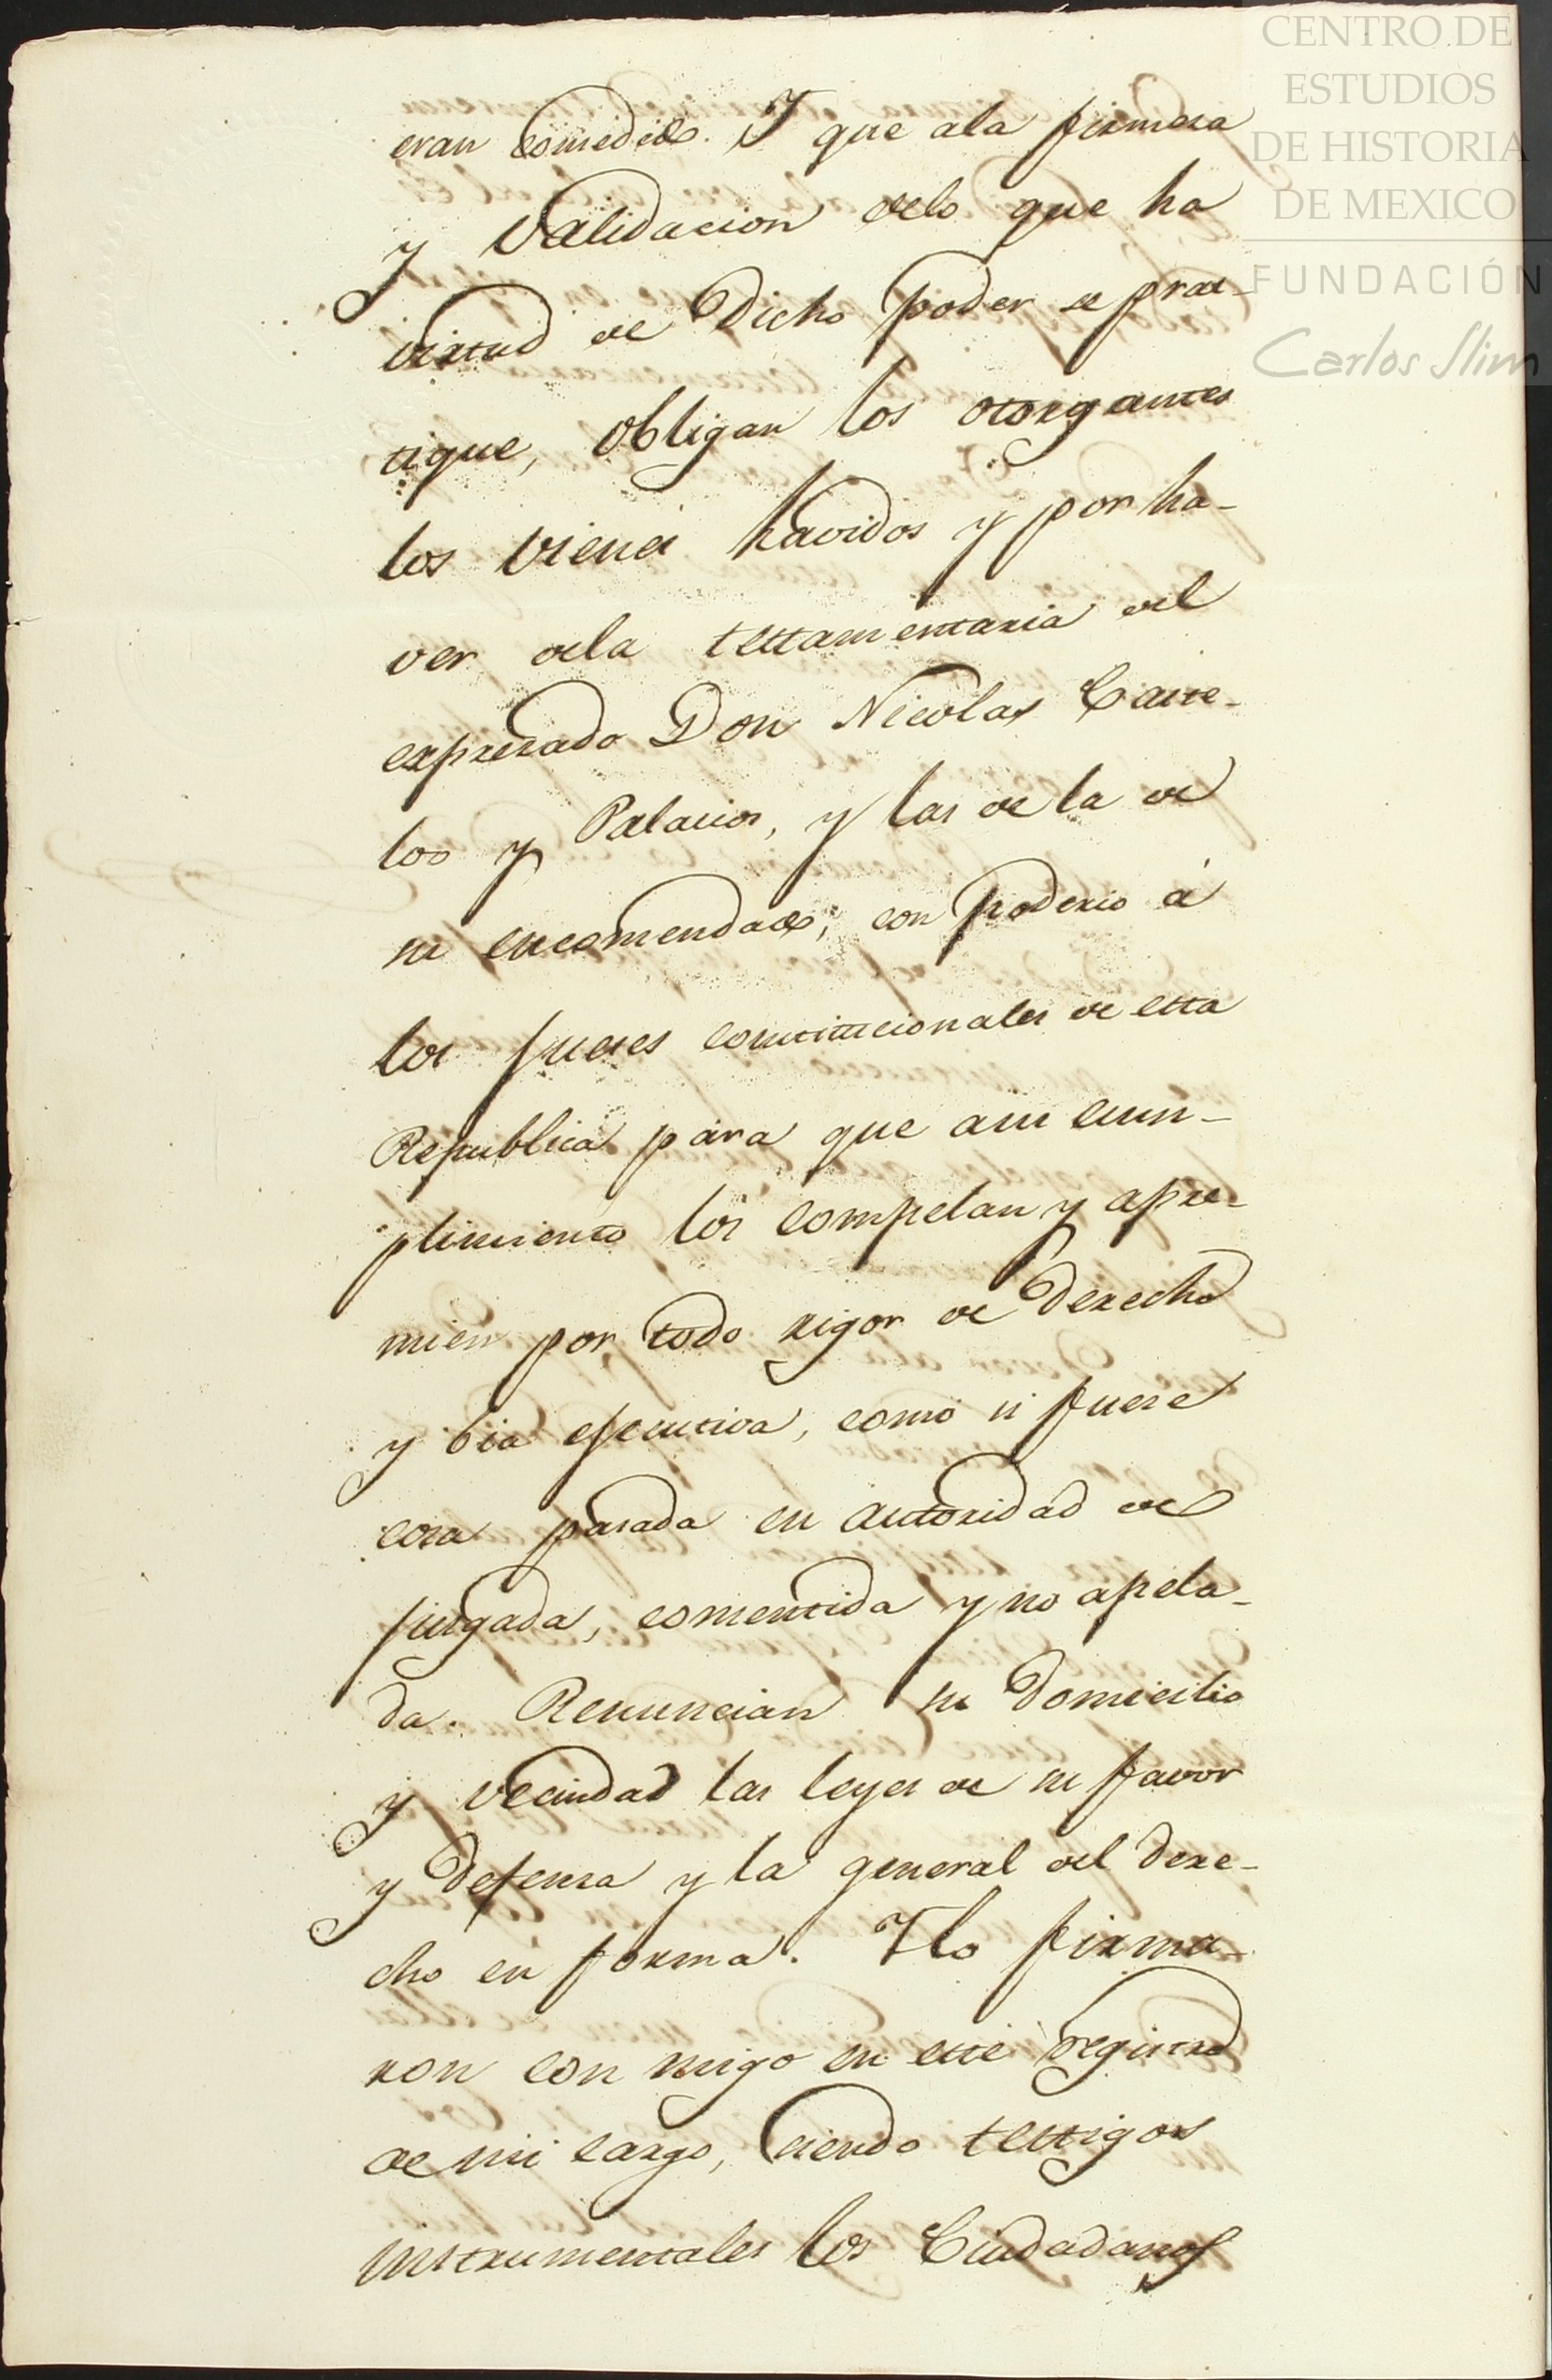 CENTRO DE
ESTUDIOS
DE HISTORIA
DE MEXICO
FUNDACIÓN
Carlos Slim
eran comedidos. Y que ala firmesa
y validacion delo que ha
virtud de Dicho poder se prac-
tique, obligan los otorgantes
los vienes havidos y por ha-
ver dela testamentaria del
expresado Don Nicolas
los y Palacios, y las de la de
su encomendado; con poderio á
los Jueses constitucionales de esta
Republica para que asu cum-
plimiento los compelan y apre-
mien por todo rigor de derecho
y bia ejecutiva, como si fuese
cosa pasada en autoridad de
jusgada, consentida y no apela-
da. Renuncian su Domicilio
y vecindad las leyes de su favor
y defensa y la general del dere-
cho en forma. Y lo firma-
ron con migo en este registro
de mi cargo, siendo testigos
instrumentales los Ciudadanos